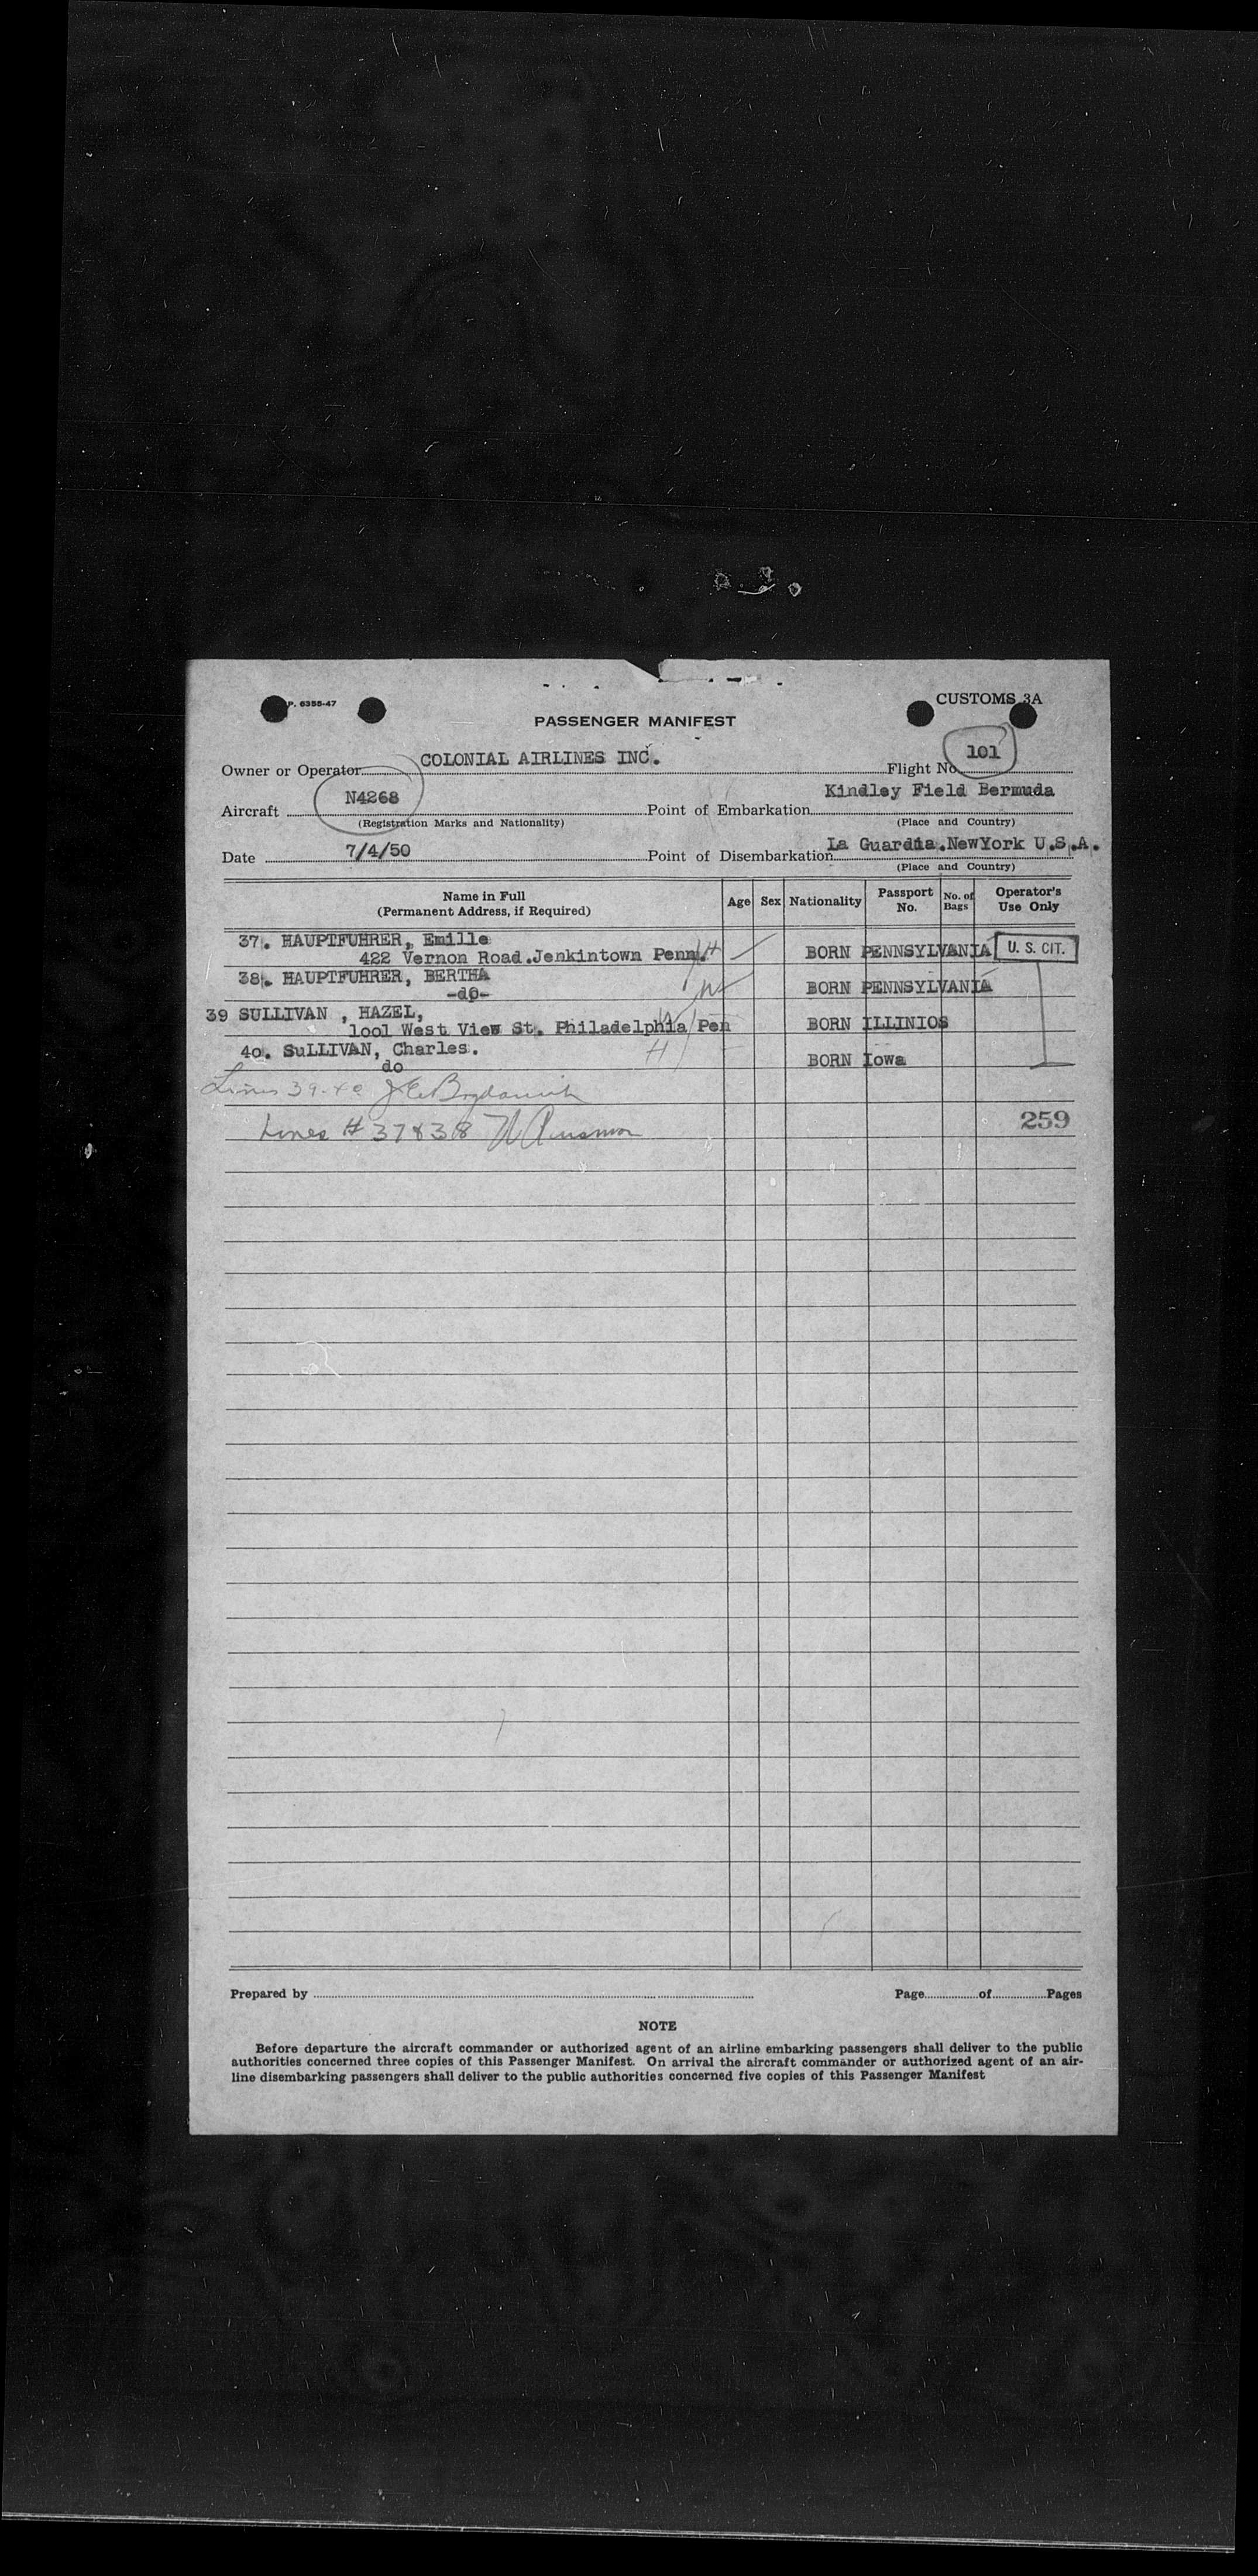 P. 6355-47
CUSTOMS 3A
PASSENGER MANIFEST
Owner or Operator COLONIAL AIRLINES INC. Flight No. 101
Aircraft N4268 Point of Embarkation Kindley Field Bermuda
(Registration Marks and Nationality) (Place and Country)
Date 7/4/50 Point of Disembarkation La Guardia.NewYork U.S.A.
(Place and Country)
Name in Full (Permanent Address, if Required) Age Sex Nationality Passport No. No. of Bags Operator's Use Only
37. HAUPTFUHRER, Emille
422 Vernon Road.Jenkintown Penn. H BORN PENNSYLVANIA U. S. CIT.
38. HAUPTFUHRER, BERTHA
-do- W BORN PENNSYLVANIA
39 SULLIVAN , HAZEL,
1001 West View St. Philadelphia Pen W BORN ILLINIOS
40. SuLLIVAN, Charles.
do H BORN Iowa
Lines 39-40
Lines # 37&38
259
Prepared by Page of Pages
NOTE
Before departure the aircraft commander or authorized agent of an airline embarking passengers shall deliver to the public
authorities concerned three copies of this Passenger Manifest. On arrival the aircraft commander or authorized agent of an air-
line disembarking passengers shall deliver to the public authorities concerned five copies of this Passenger Manifest